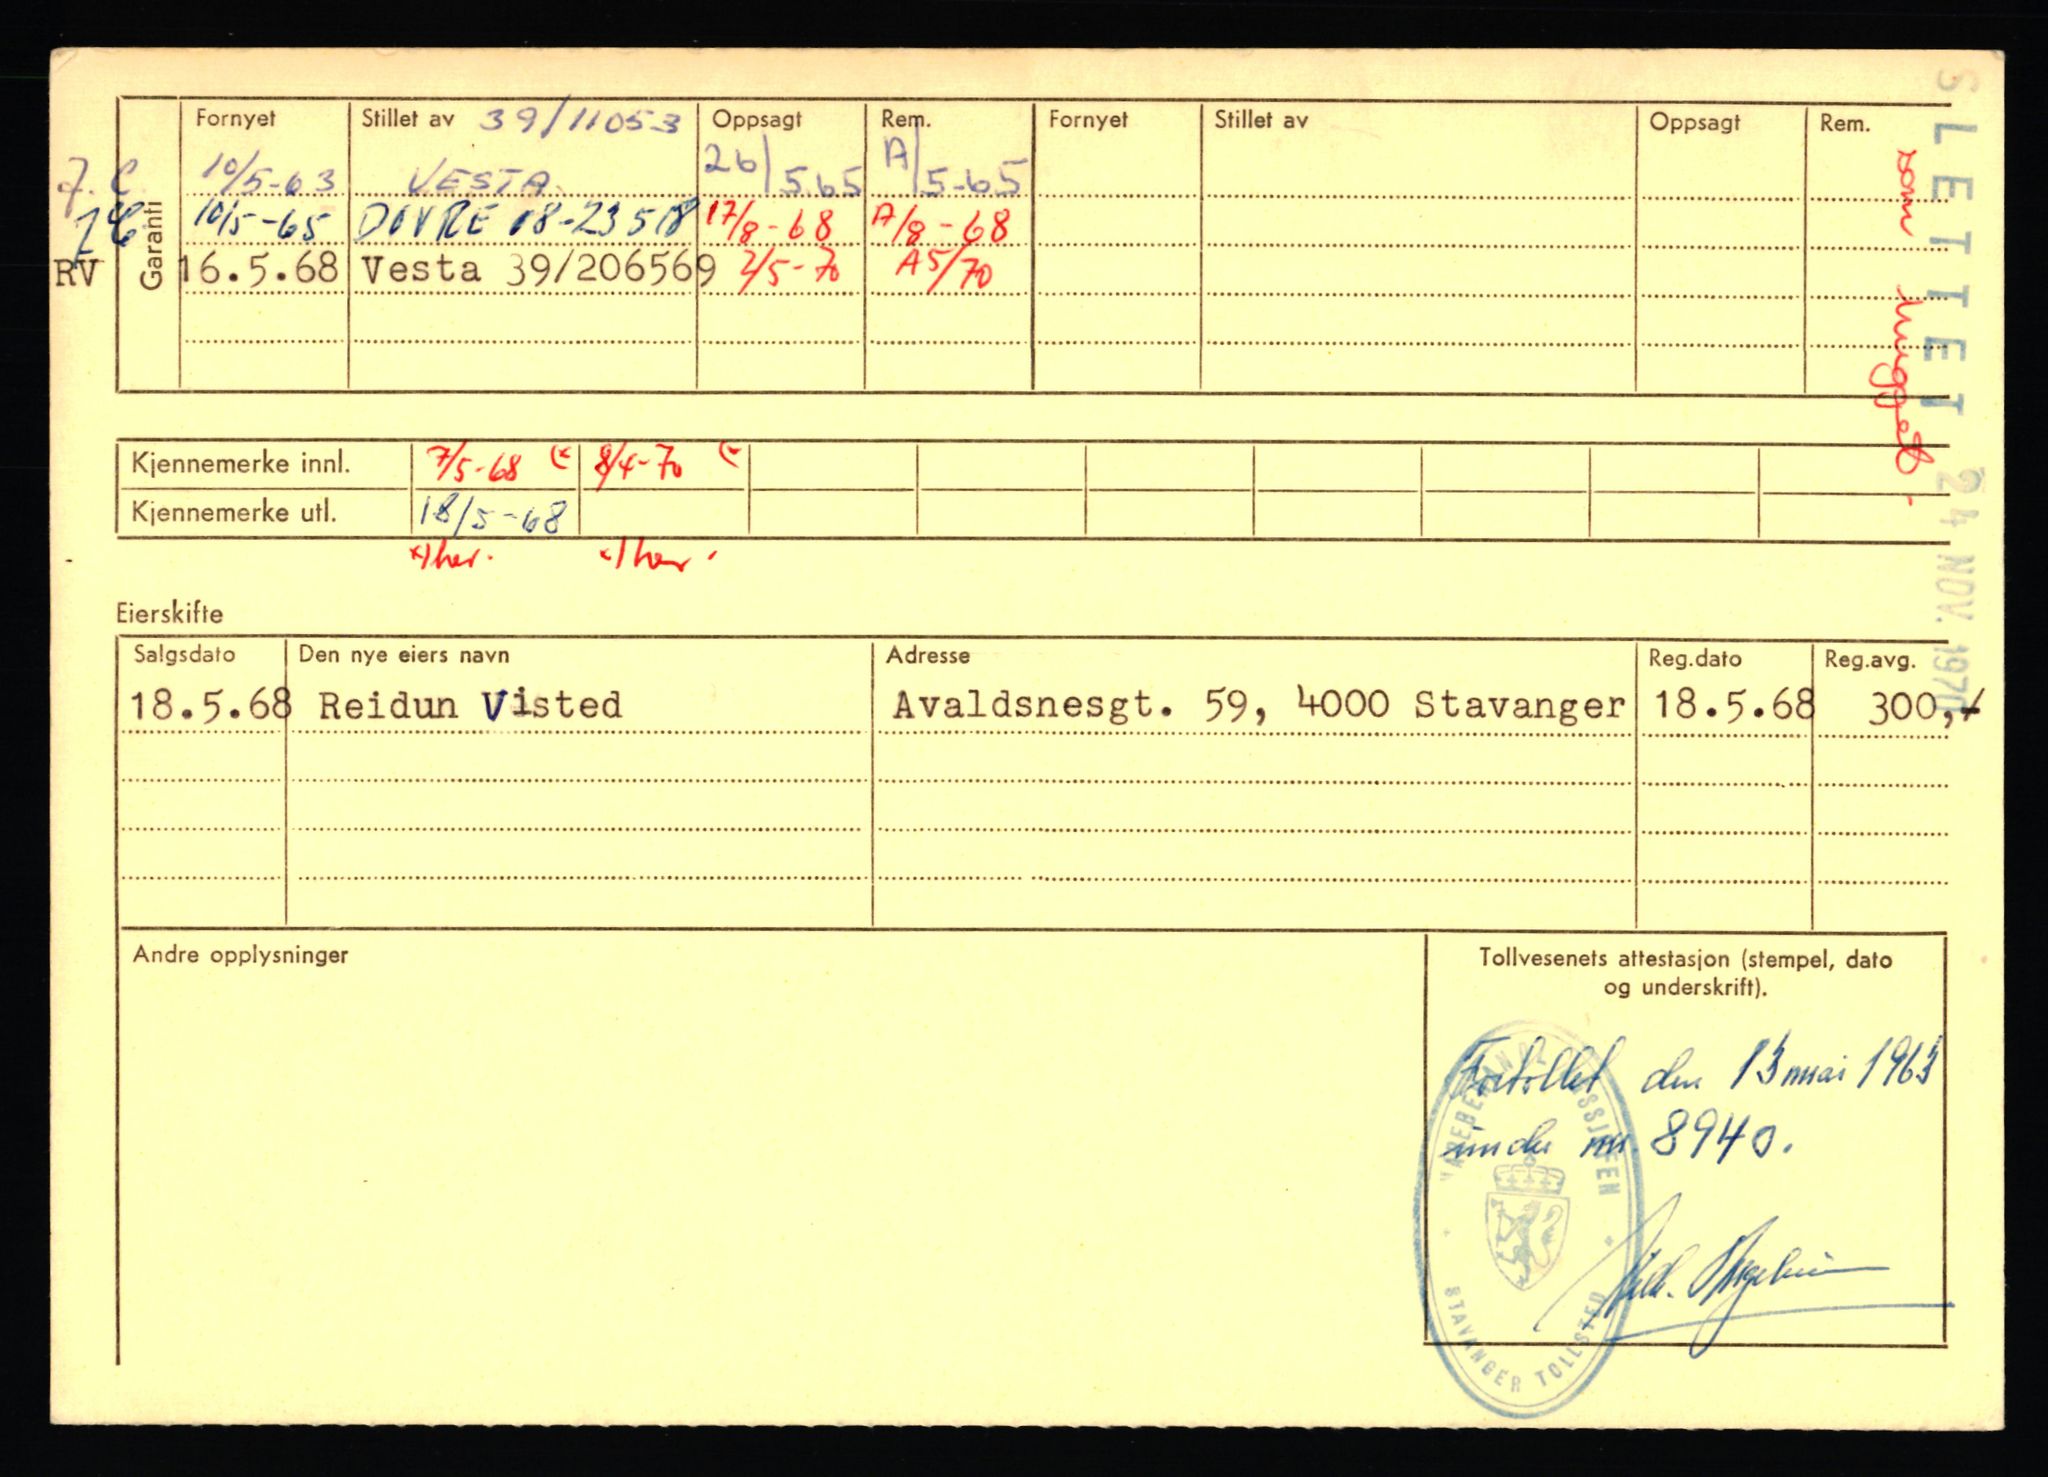 Garanti
Fornyet Stillet av 39/11053 Oppsagt Rem. Fornyet Stillet av Oppsagt Rem.
10/5-63 VESTA 26/5.65 A/5-65
10/5-65 DOVRE 08-23518 17/8-68 A/8-68
RV 16.5.68 Vesta 39/206569 2/5-70 A5/70
SLETTET 24 NOV. 1970
som hugget.
Kjennemerke innl. 7/5-68 (* 8/4-70 (*
Kjennemerke utl. 18/5-68
*) her. *) her.
Eierskifte
Salgsdato Den nye eiers navn Adresse Reg.dato Reg.avg.
18.5.68 Reidun Visted Avaldsnesgt. 59, 4000 Stavanger 18.5.68 300,-
Andre opplysninger
Tollvesenets attestasjon (stempel, dato
og underskrift).
Fortollet den 13 mai 1963
under nr. 8940.
STAVANGER TOLLSTED